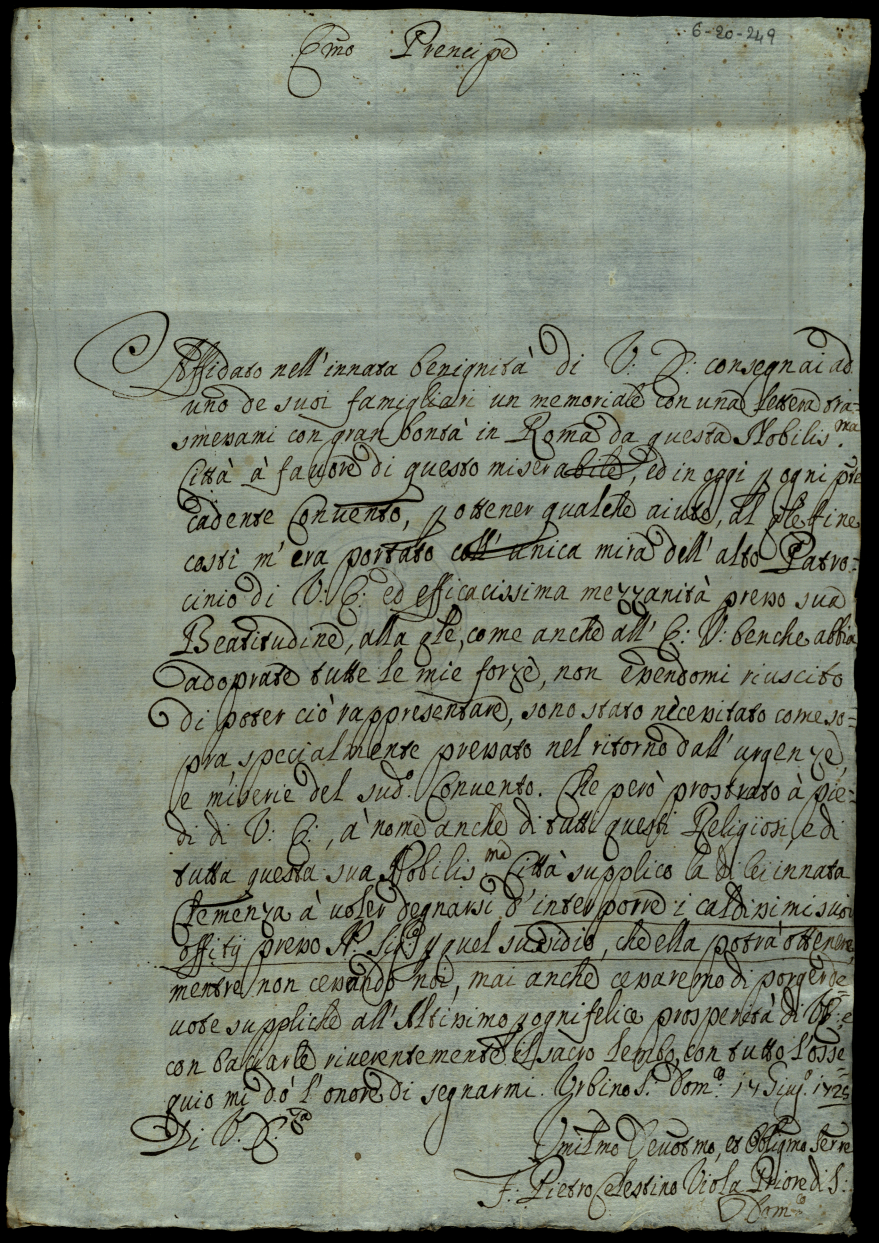 6-20-249
Em̃o Prencipe
Affidato nell'innata benignità di V: E: consegnai ad
uno de suoi famigliari un memoriale con una lettera tra=
smessami con gran bontà in Roma da questa Nobilis.ma
Città à favore di questo miserabile, ed in oggi p ogni pte
cadente Convento, p ottener qualche aiuto, al qle fine
costi m'era portato coll'unica mira dell'alto Patro=
cinio di V: E: ed efficacissima mezzanità presso sua
Beatitudine, alla qle, come anche all'E: V: benche abbia
adoprate tutte le mie forze, non essendomi riuscito
di poter ciò rappresentare, sono stato necessitato come so=
pra specialmente pressato nel ritorno dall'urgenze,
e miserie del sud.o Convento. Che però prostrato à pie=
di di V: E:, à nome anche di tutti questi Religiosi, e di
tutta questa sua Nobilis.ma Città supplico la di lei innata
Clemenza à voler degnarsi d'interporre i caldissimi suoi
offitij presso N. Sig.e p quel sussidio, che ella potrà ottenere,
mentre non cessando noi, mai anche cessaremo di porger de=
vote suppliche all'Altissimo p ogni felice prosperità di V: E:
con baciarle riverentemente il sacro lembo, con tutto l'osse=
quio mi dò l'onore di segnarmi. Urbino S. Dom.co 17 Giug.o 1725
Di V: E:za
Umilmo Devotmo, et Obligmo Serre
F: Pietro Celestino Viola Priore di S:
Dom.co